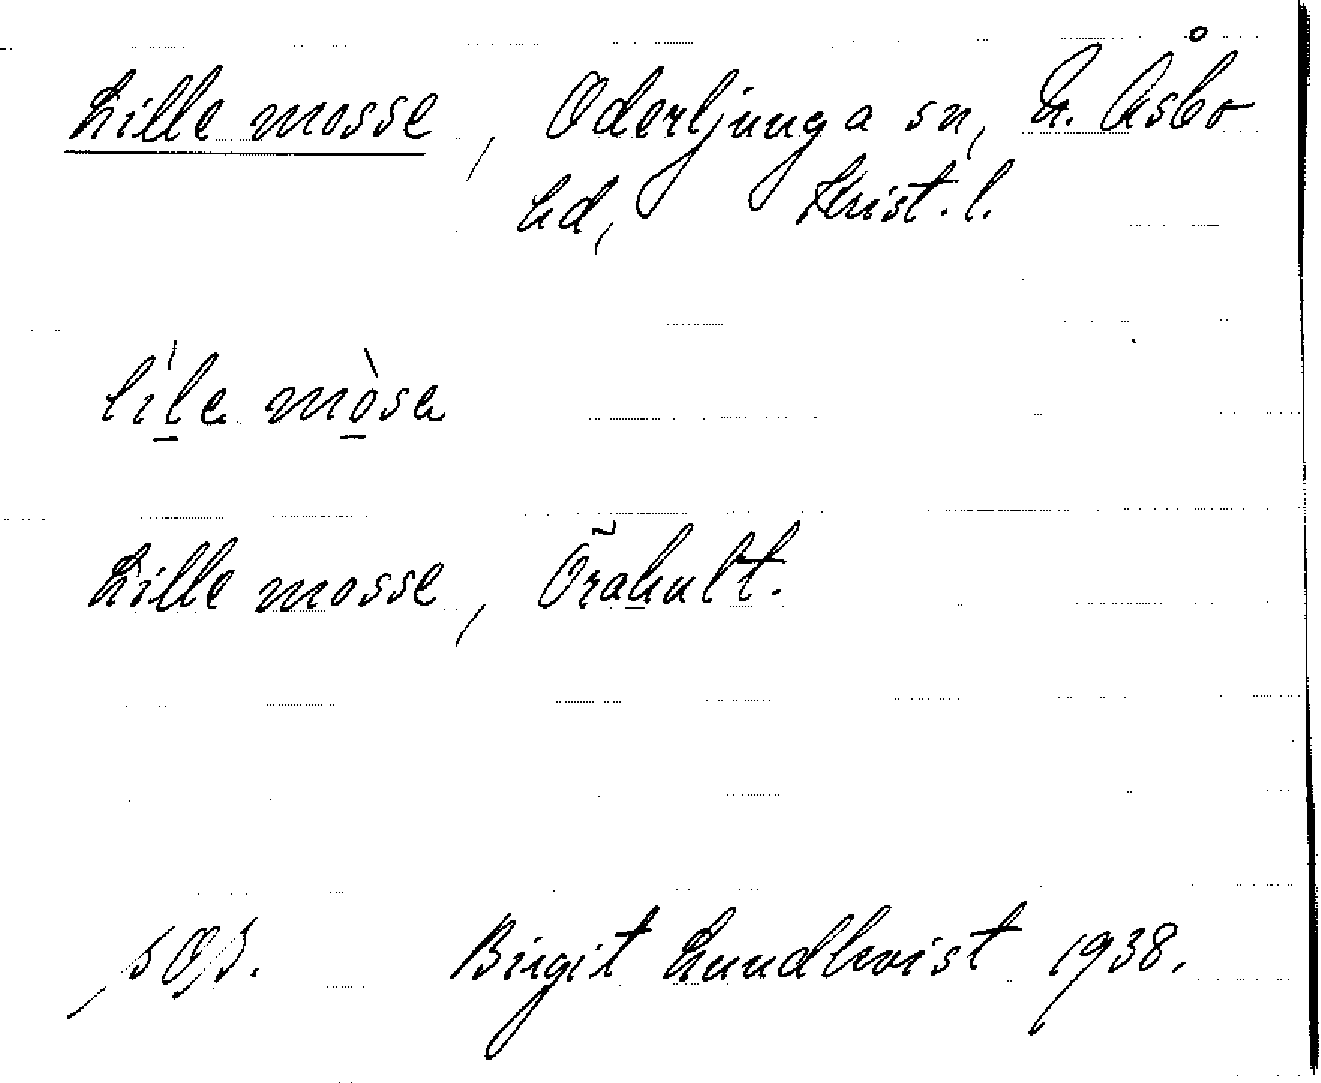 Lille mosse, Oderljunga sn, N. Åsbo
hd, Krist. l.
líla mòsa
Lille mosse, Örahult.
Birgit Lundkvist 1938.